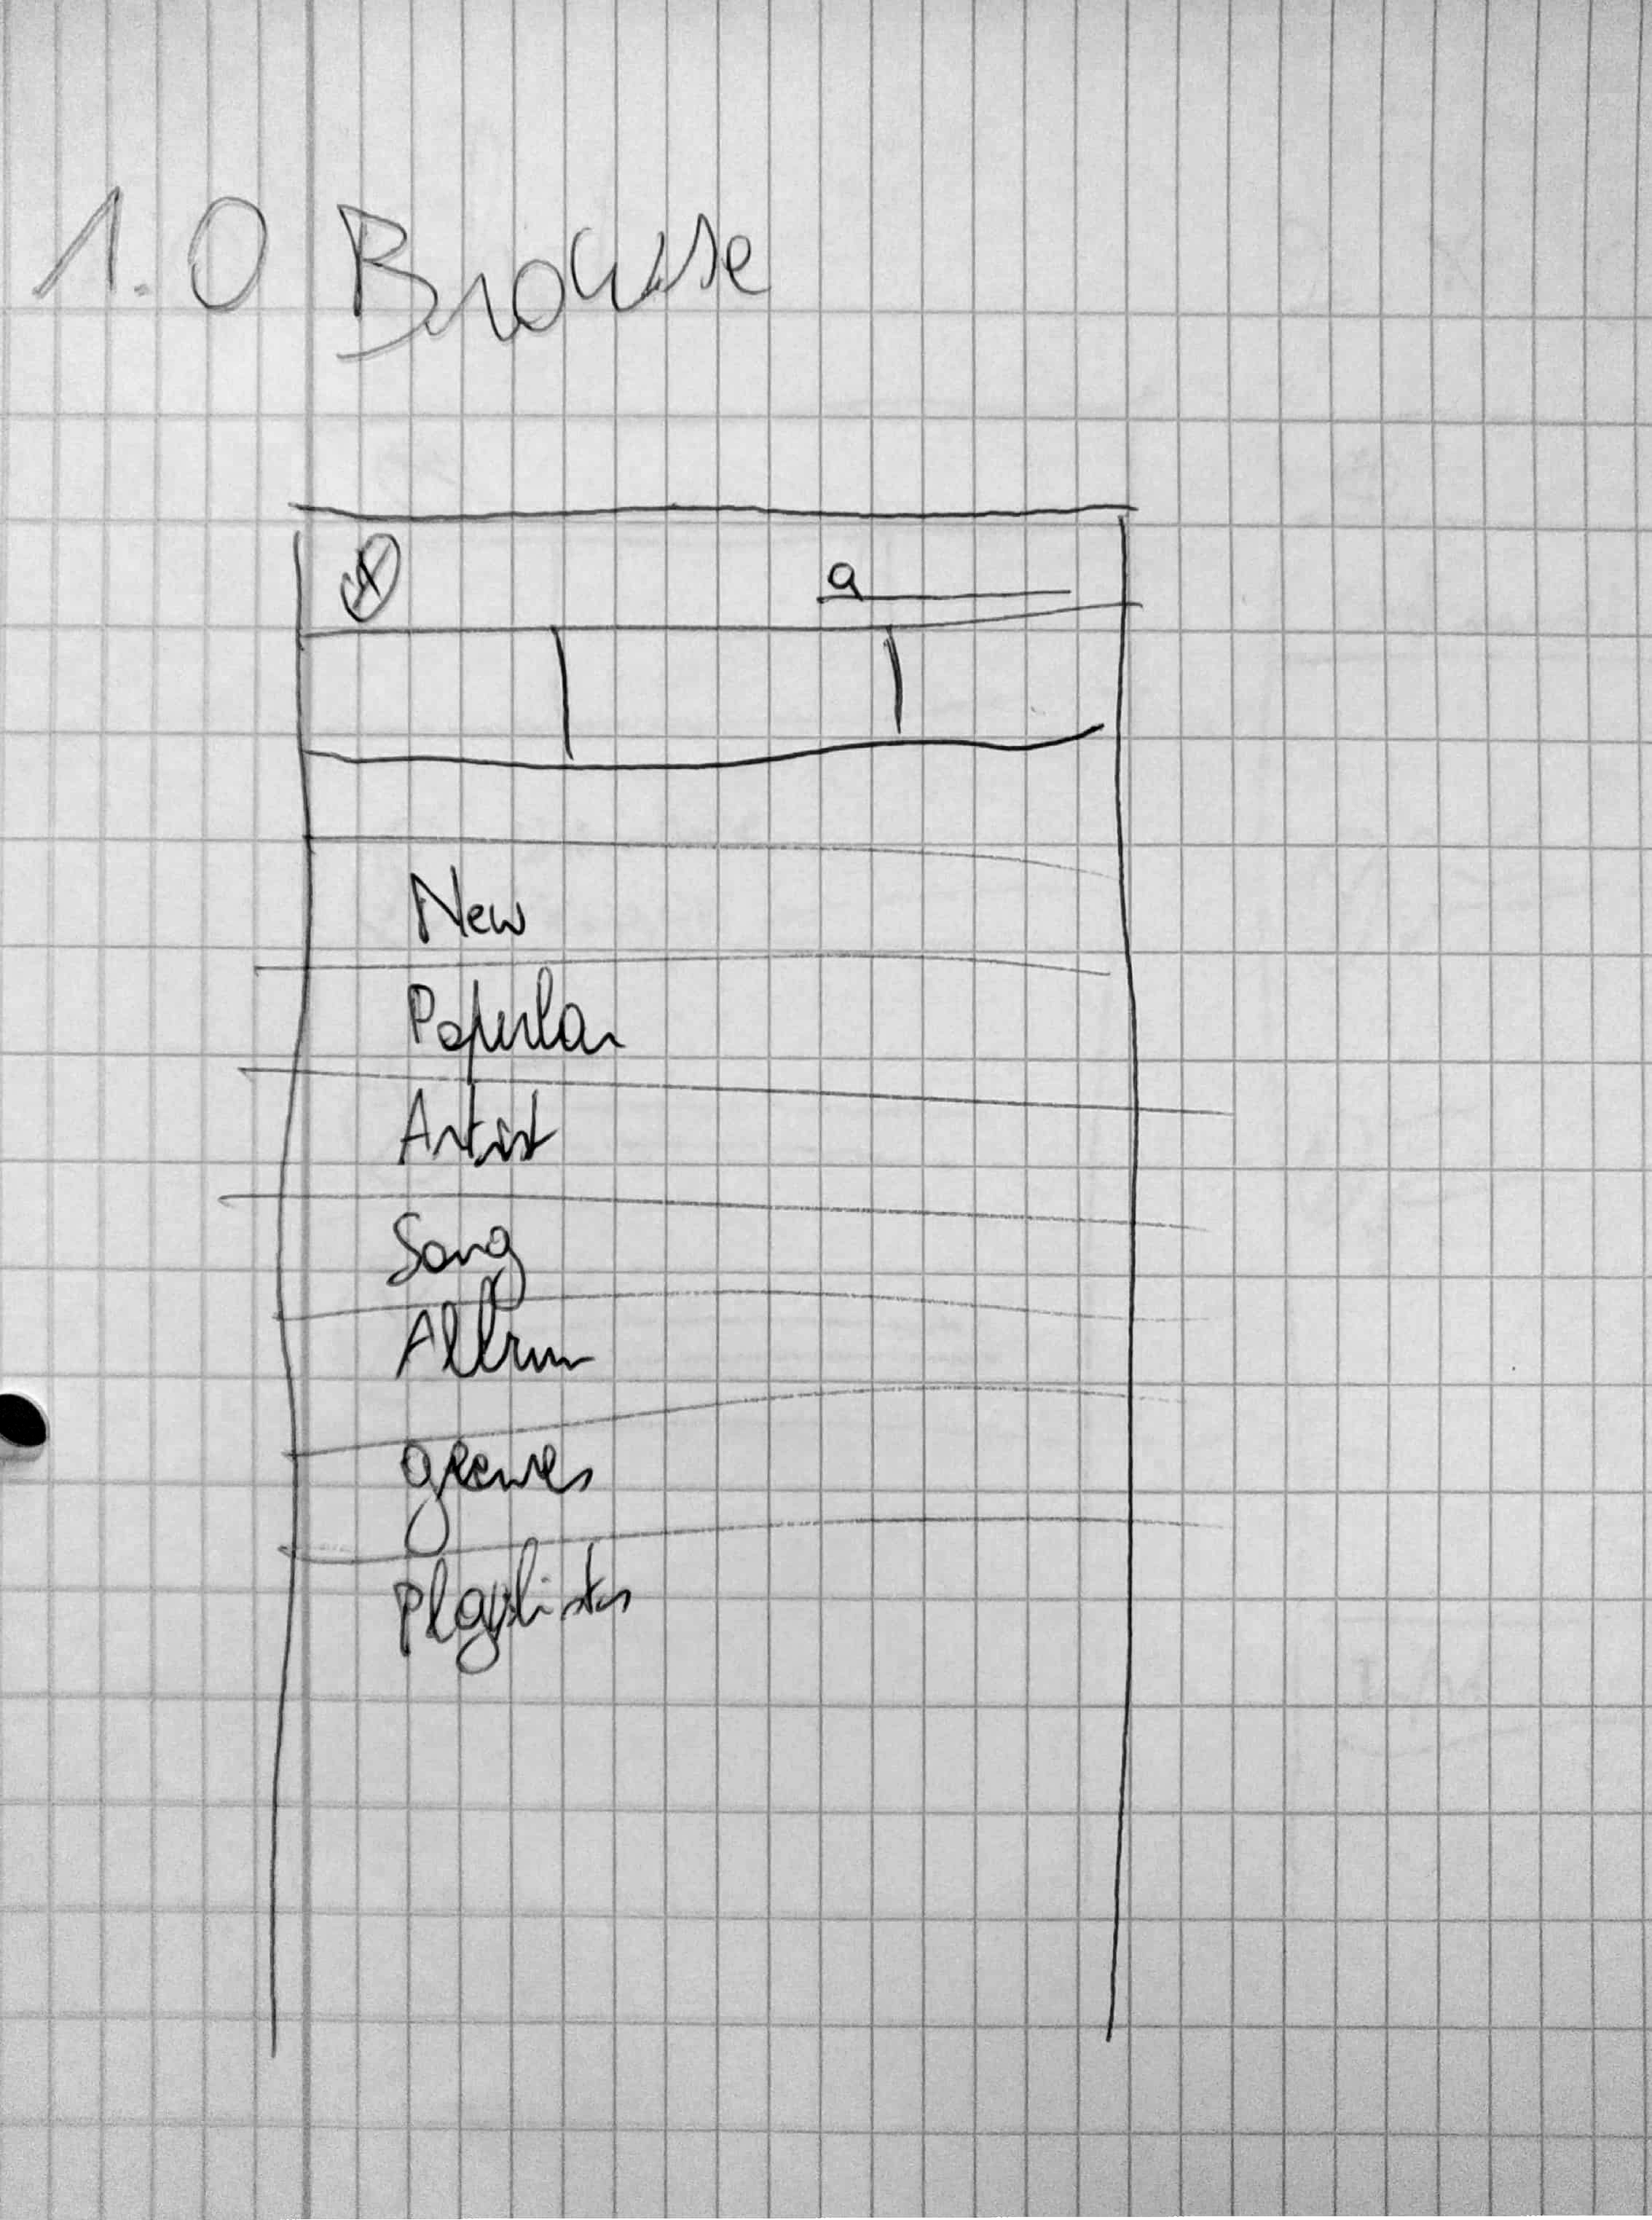 1.0 Browse
New
Popular
Artist
Song
Album
genres
Playlists